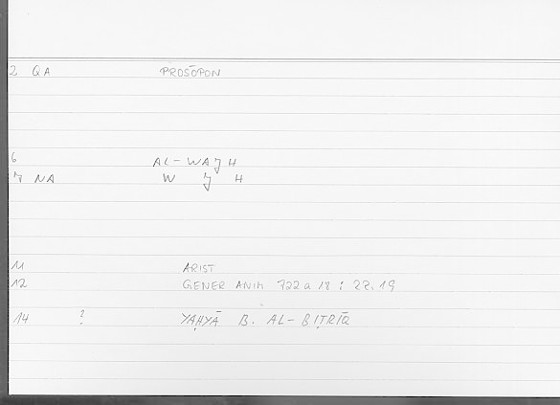 2 QA PROSŌPON
6 AL-WAǦH
7 NA W Ǧ H
11 ARIST
12 GENER ANIM 722 a 18 ; 22.19
14 ? YAḤYĀ B. AL-BIṬRĪQ